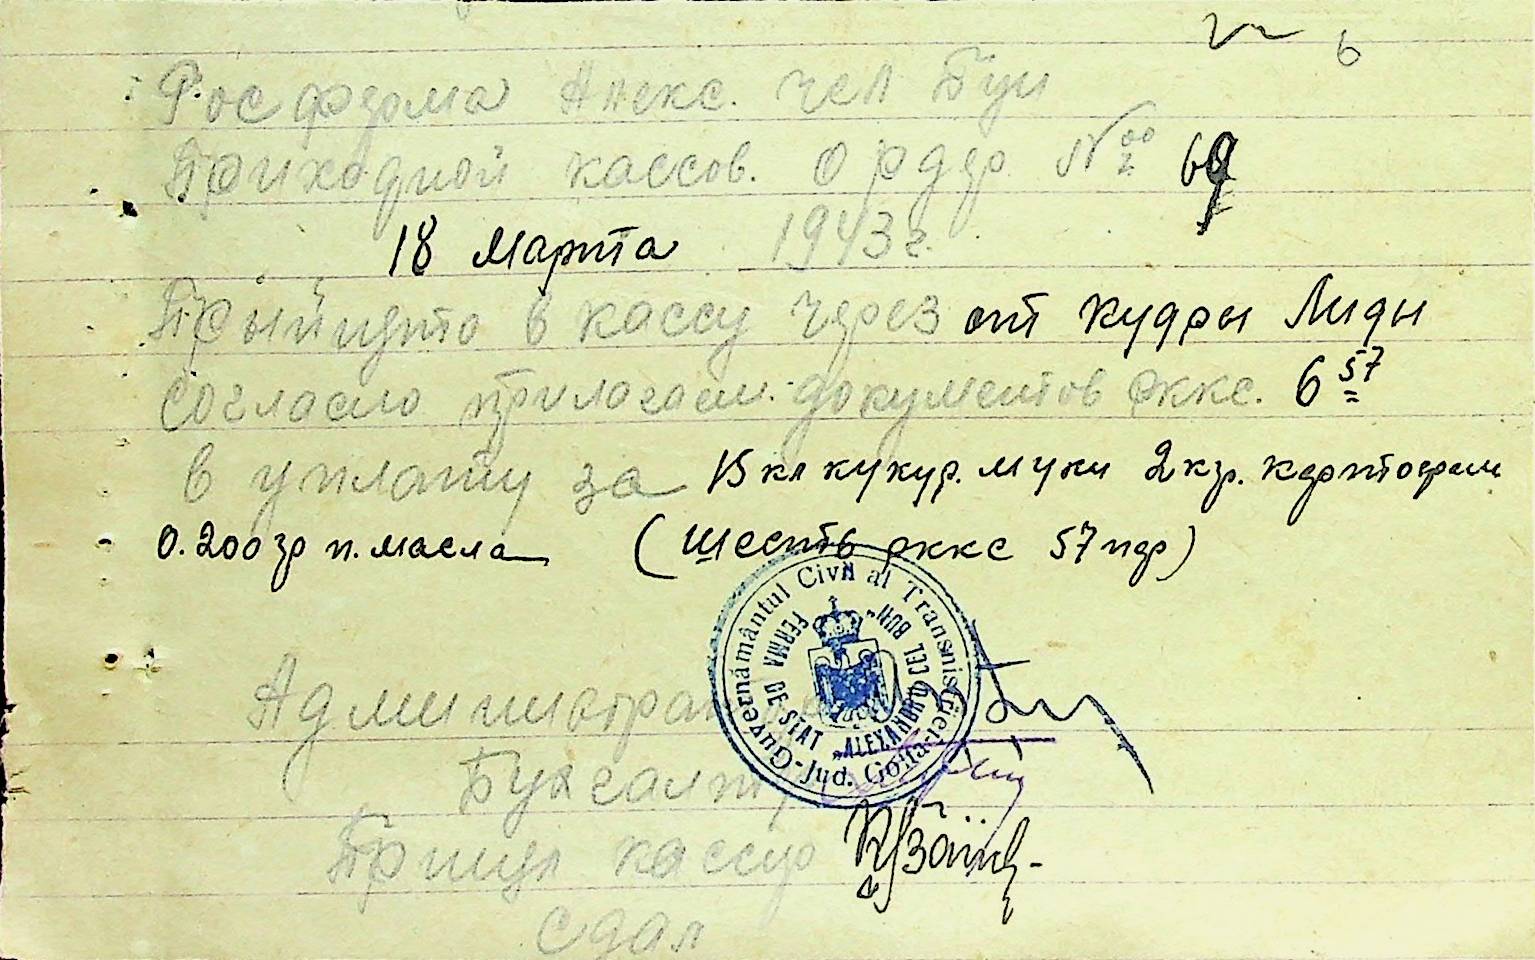 6
Госферма Алекс. чел Бун
Приходной кассов. ордер № 69
18 марта 1943 г.
Прыйнято в кассу через от Кудры Лиды
согласно прилагаем. документов рккс. 6 57
в уплату за 15 кл кукур. муки 2 кгр. картофели
0.200 гр п. масла (Шесть рккс 57 пф)
Guvernământul Civil al Transnistriei-Jud. Golta-
FERMA DE STAT „ALEXANDRU CEL BUN"
Администрат
Бухгалтер
Принял кассир
Сдал